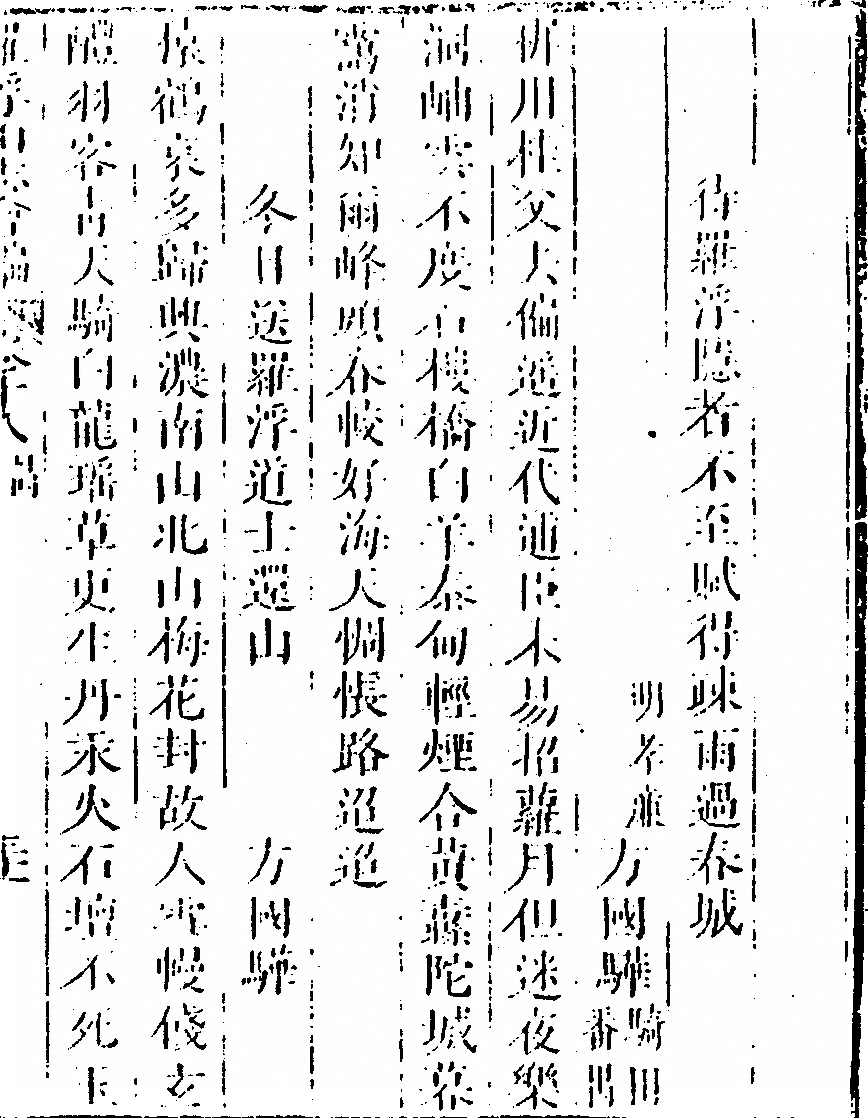 待羅浮隱者不至賦得疎雨過春城
明孝廉方國驊騎田番禺
川桂父大偏遙近代逋臣未易招蘿月但迷夜樂
洞岫雲不度石樓橋白羊泰甸輕煙合黃蘤陀城暮
靄消知爾峰頭春較好海天惆悵路迢迢
冬日送羅浮道士還山 方國驊
猿鶴哀多歸興濃南山北山梅花封故人雪幔餞玄
醴羽客古天騎白龍瑤草更生丹汞火石壇不死玉
羅浮山志會編 卷十八 詩